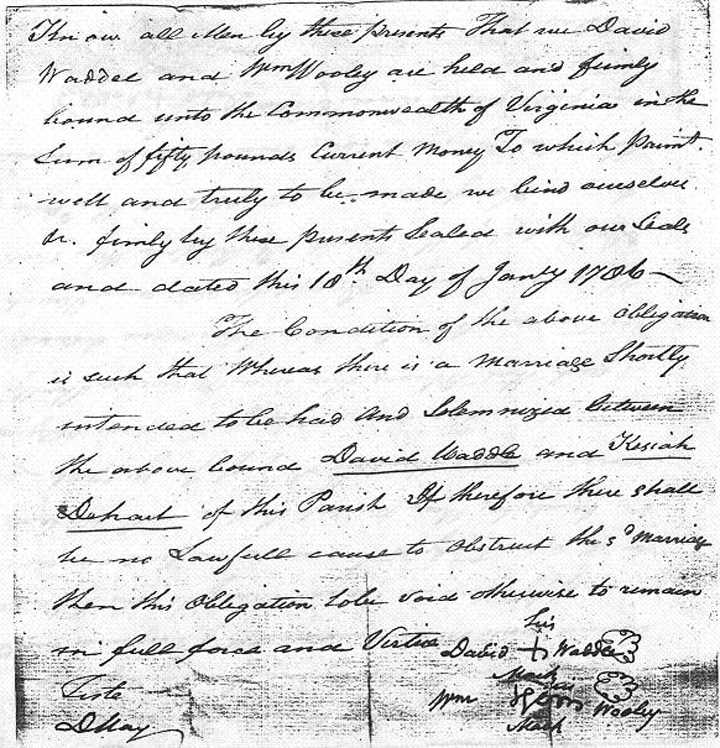 Know all Men by these presents That we David
Waddle and Wm Wooley are held and firmly
bound unto the Commonwealth of Virginia in the
Sum of fifty pounds Current Money To which paimt.
well and truly to be made we bind ourselves
&c. firmly by these presents Sealed with our Seals
and dated this 10th Day of Janry 1786
The Condition of the above Obligation
is such that Whereas there is a Marriage Shortly
intended to be had And Solemnized between
the above bound David Waddle and Kesiah
of this Parish If therefore there shall
be no Lawfull cause to Obstruct the sd Marriage
then this Obligation to be void otherwise to remain
in full force and Virtue
his
David + Waddle
Mark
Teste
Wm Wooley
Mark
D May